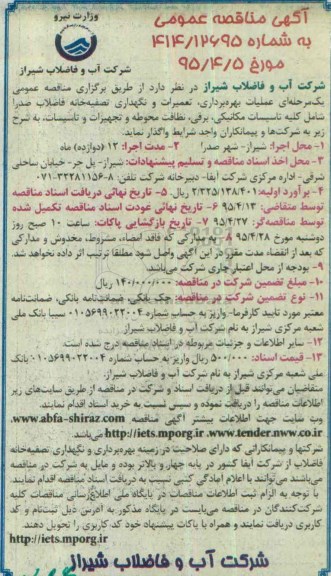 وزارت نیرو
شرکت آب و فاضلاب شیراز
آگهی مناقصه عمومی
به شماره ۴۱۴/۱۲۶۹۵
مورخ ۹۵/۴/۵
شرکت آب و فاضلاب شیراز در نظر دارد از طریق برگزاری مناقصه عمومی
یک‌مرحله‌ای عملیات بهره‌برداری، تعمیرات و نگهداری تصفیه‌خانه فاضلاب صدرا
شامل کلیه تاسیسات مکانیکی، برقی، نظافت محوطه و تجهیزات و تاسیسات، به شرح
زیر به شرکت‌ها و پیمانکاران واجد شرایط واگذار نماید:
۱- محل اجرا: شیراز- شهر صدرا ۲- مدت اجرا: ۱۲ (دوازده) ماه
۳- محل اخذ اسناد مناقصه و تسلیم پیشنهادات: شیراز- پل حر- خیابان ساحلی
شرقی- اداره مرکزی شرکت آبفا- دبیرخانه شرکت تلفن: ۸-۳۲۲۸۱۱۵۶-۰۷۱
۴- برآورد اولیه: ۲/۳۲۵/۱۳۸/۴۰۱ ریال. ۵- تاریخ نهائی دریافت اسناد مناقصه
توسط متقاضی: ۹۵/۴/۱۳ ۶- تاریخ نهائی عودت اسناد مناقصه تکمیل شده
توسط مناقصه‌گر: ۹۵/۴/۲۷ ۷- تاریخ بازگشایی پاکات: ساعت ۱۰ صبح روز
دوشنبه مورخ ۹۵/۴/۲۸ ۸- مدارکی که فاقد امضاء، مشروط، مخدوش و مدارکی
که بعد از انقضاء مدت مقرر در این آگهی واصل شود مطلقا ترتیب اثر داده نخواهد شد.
۹- بودجه از محل اعتبار جاری شرکت می‌باشد.
۱۰- مبلغ تضمین شرکت در مناقصه: ۱۴۰/۰۰۰/۰۰۰ ریال
۱۱- نوع تضمین شرکت در مناقصه: چک بانکی، ضمانت‌نامه بانکی، ضمانت‌نامه
معتبر مورد تایید کارفرما- واریز به حساب شماره ۰۱۰۵۶۹۹۰۲۲۰۰۴ سیبا بانک ملی
شعبه مرکزی شیراز به نام شرکت آب و فاضلاب شیراز
۱۲- سایر اطلاعات و جزئیات مربوطه در اسناد مناقصه درج شده است.
۱۳- قیمت اسناد: ۵۰۰/۰۰۰ ریال واریز به حساب شماره ۰۱۰۵۶۹۹۰۲۲۰۰۴ بانک
ملی شعبه مرکزی شیراز به نام شرکت آب و فاضلاب شیراز.
متقاضیان می‌توانند قبل از دریافت اسناد و شرکت در مناقصه از طریق سایت‌های زیر
اطلاعات مناقصه را دریافت نموده و سپس نسبت به خرید اسناد اقدام نمایند.
وب سایت جهت اطلاعات بیشتر آگهی مناقصه www.abfa-shiraz.com،
www.tender.nww.co.ir و http://iets.mporg.ir می‌باشد.
شرکتها و پیمانکارانی که دارای صلاحیت در زمینه بهره‌برداری و نگهداری تصفیه‌خانه
فاضلاب از شرکت آبفا کشور در پایه چهار و بالاتر بوده و مایل به شرکت در مناقصه
می‌باشند می‌توانند با اعلام آمادگی کتبی نسبت به دریافت اسناد مناقصه اقدام نمایند.
با توجه به الزام ثبت اطلاعات مناقصات در پایگاه ملی اطلاع‌رسانی مناقصات کلیه
شرکت‌کنندگان در مناقصه می‌بایست در پایگاه مذکور به آدرس ذیل ثبت‌نام و کد
کاربری دریافت نمایند و همراه با پاکات پیشنهاد خود کد کاربری را تحویل دهند.
http://iets.mporg.ir
شرکت آب و فاضلاب شیراز